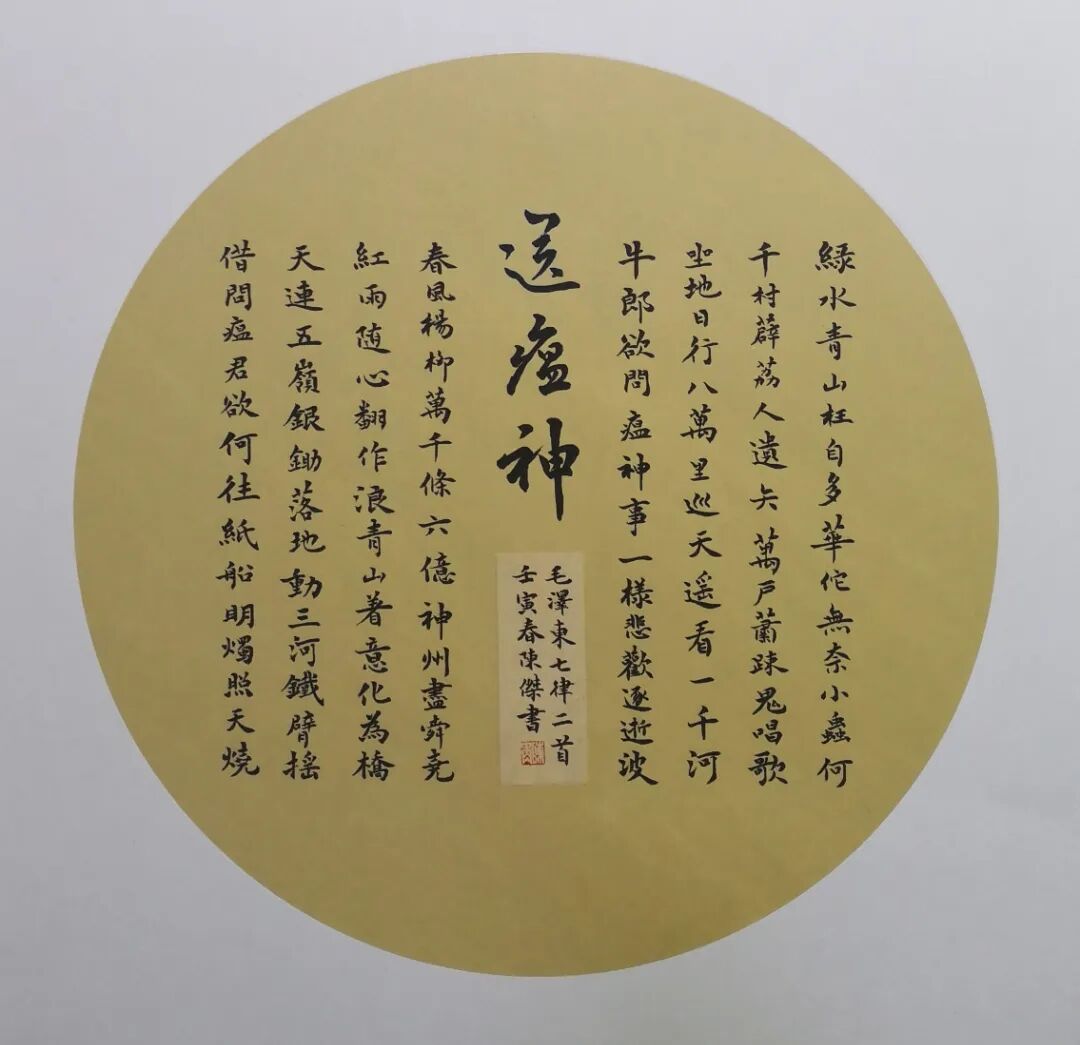 綠水青山枉自多華佗無奈小蟲何
千村薜荔人遺矢萬戶蕭疎鬼唱歌
坐地日行八萬里巡天遥看一千河
牛郎欲問瘟神事一樣悲歡逐逝波
送瘟神
毛澤東七律二首
壬寅春陳傑書
春風楊柳萬千條六億神州盡舜堯
紅雨随心翻作浪青山著意化為橋
天連五嶺銀鋤落地動三河鐵臂摇
借問瘟君欲何往紙船明燭照天燒